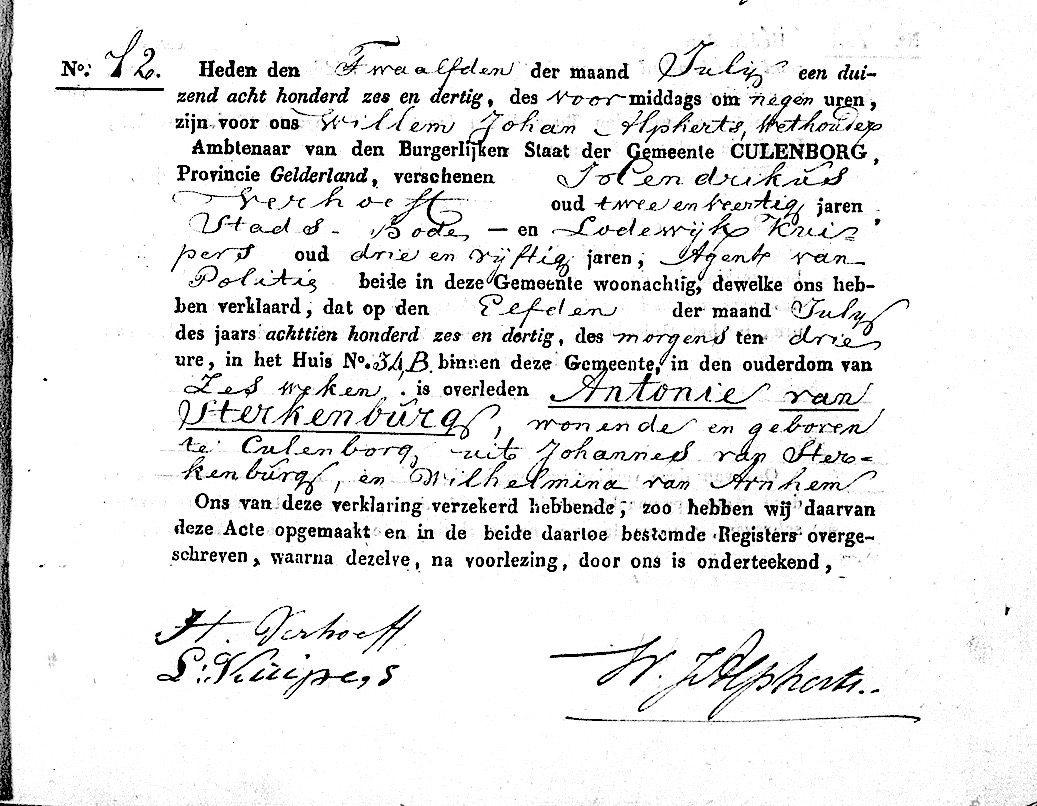 No: 72. Heden den Twaalfden der maand July een dui-
zend acht honderd zes en dertig, des voor middags om negen uren,
zijn voor ons Willem Johan Alpherts, Wethouder
Ambtenaar van den Burgerlijken Staat der Gemeente CULENBORG,
Provincie Gelderland, verschenen
Verhoeff oud twee en veertig jaren,
Stads-Bode, — en Lodewijk Kui-
pers oud drie en vijftig jaren, Agent van
Politie beide in deze Gemeente woonachtig, dewelke ons heb-
ben verklaard, dat op den Elfden der maand July
des jaars achttien honderd zes en dertig, des morgens ten drie
ure, in het Huis No. 34,B. binnen deze Gemeente, in den ouderdom van
Zes weken, is overleden Antonie van
Sterkenburg, wonende en geboren
te Culenborg uit Johannes van Ster=
kenburg, en Wilhelmina van Arnhem
Ons van deze verklaring verzekerd hebbende, zoo hebben wij daarvan
deze Acte opgemaakt en in de beide daartoe bestemde Registers overge-
schreven, waarna dezelve, na voorlezing, door ons is onderteekend,
H. Verhoeff
L: Kuipers
W. J. Alpherts.